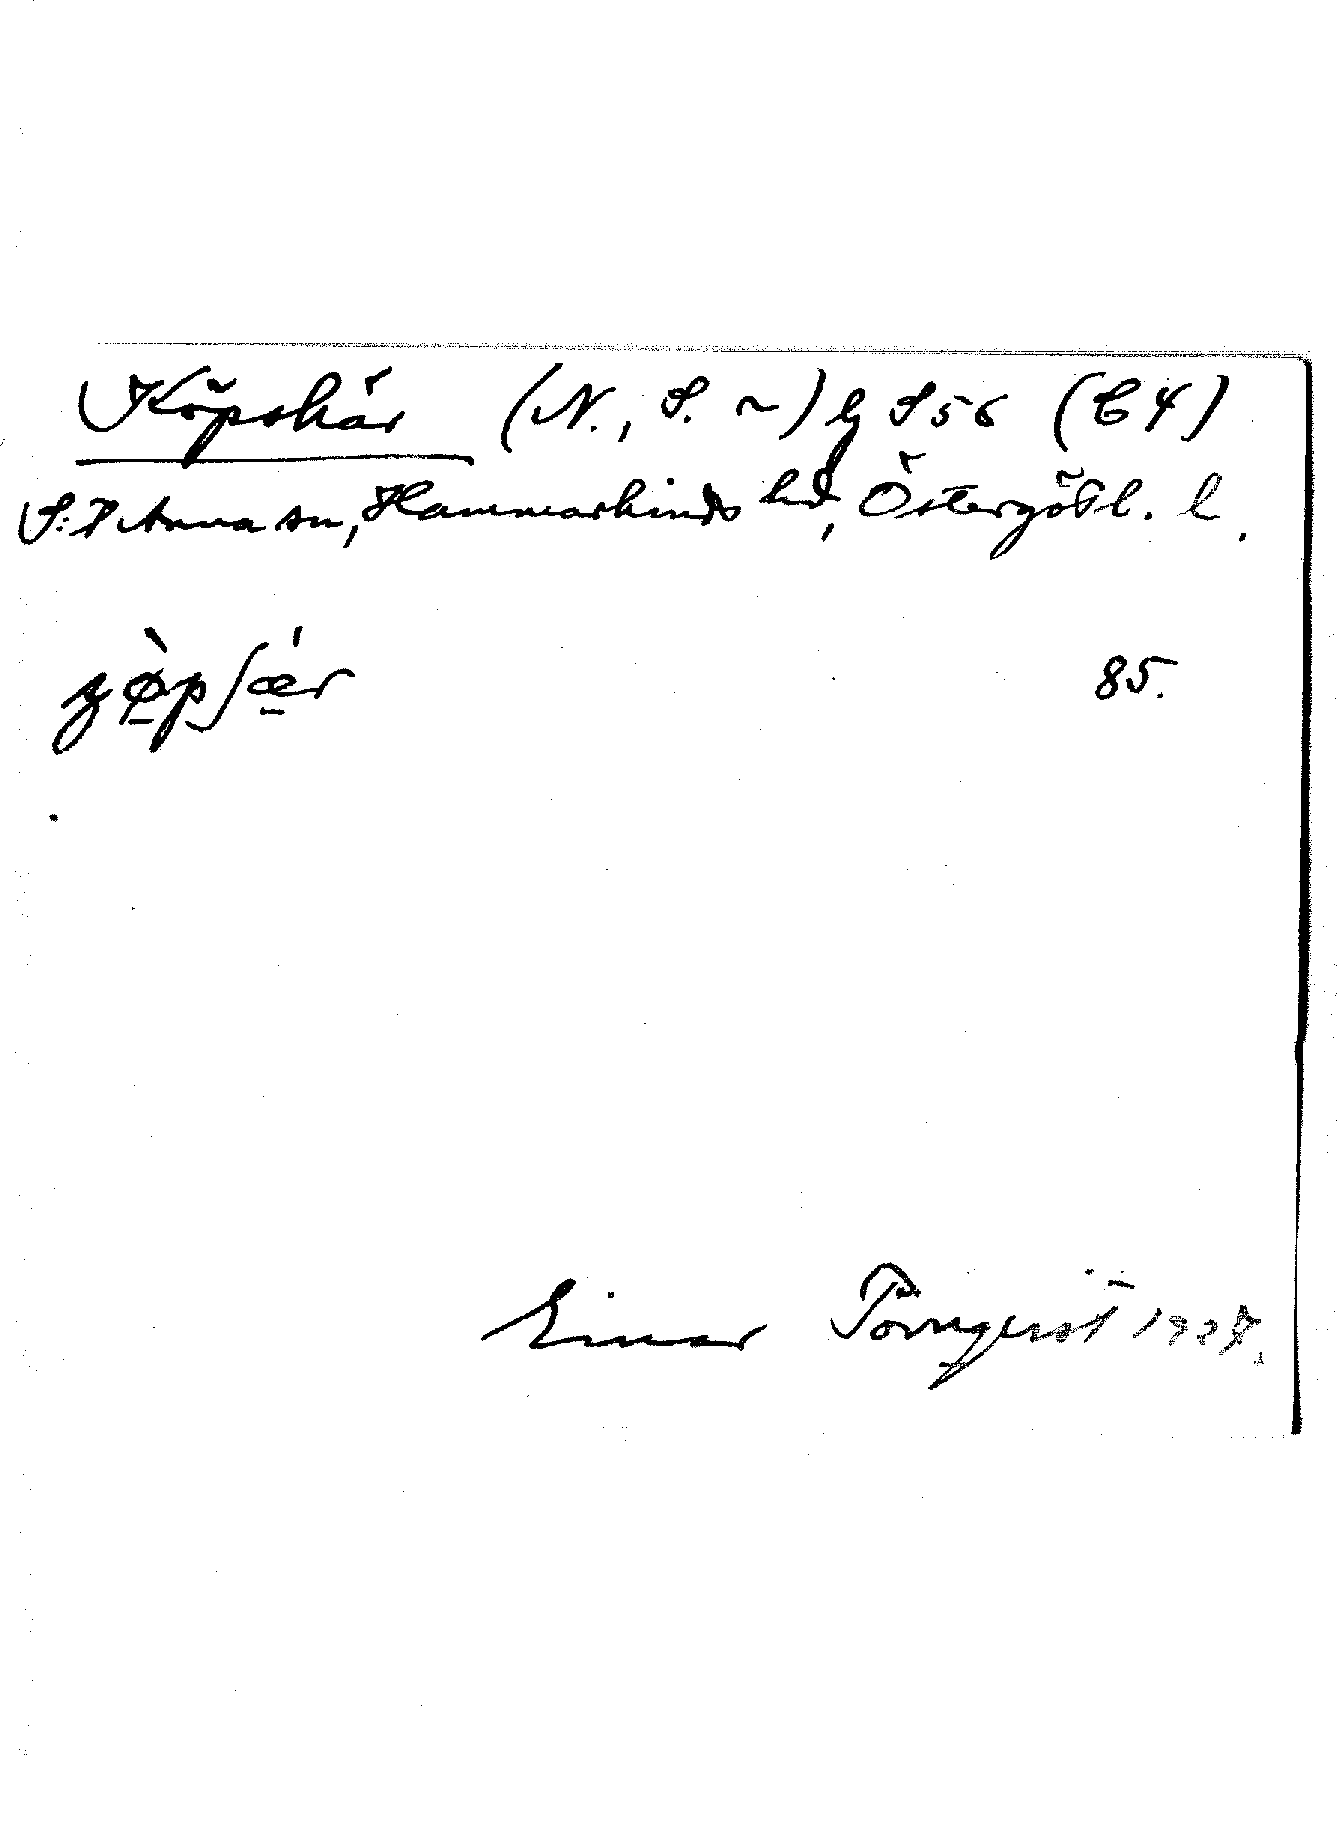 Köpskär (N., S. ~) lg S56 (C4)
S:t Anna sn, Hammarkinds hd, Östergötl. l.
85.
Einar Tornqvist 1927.